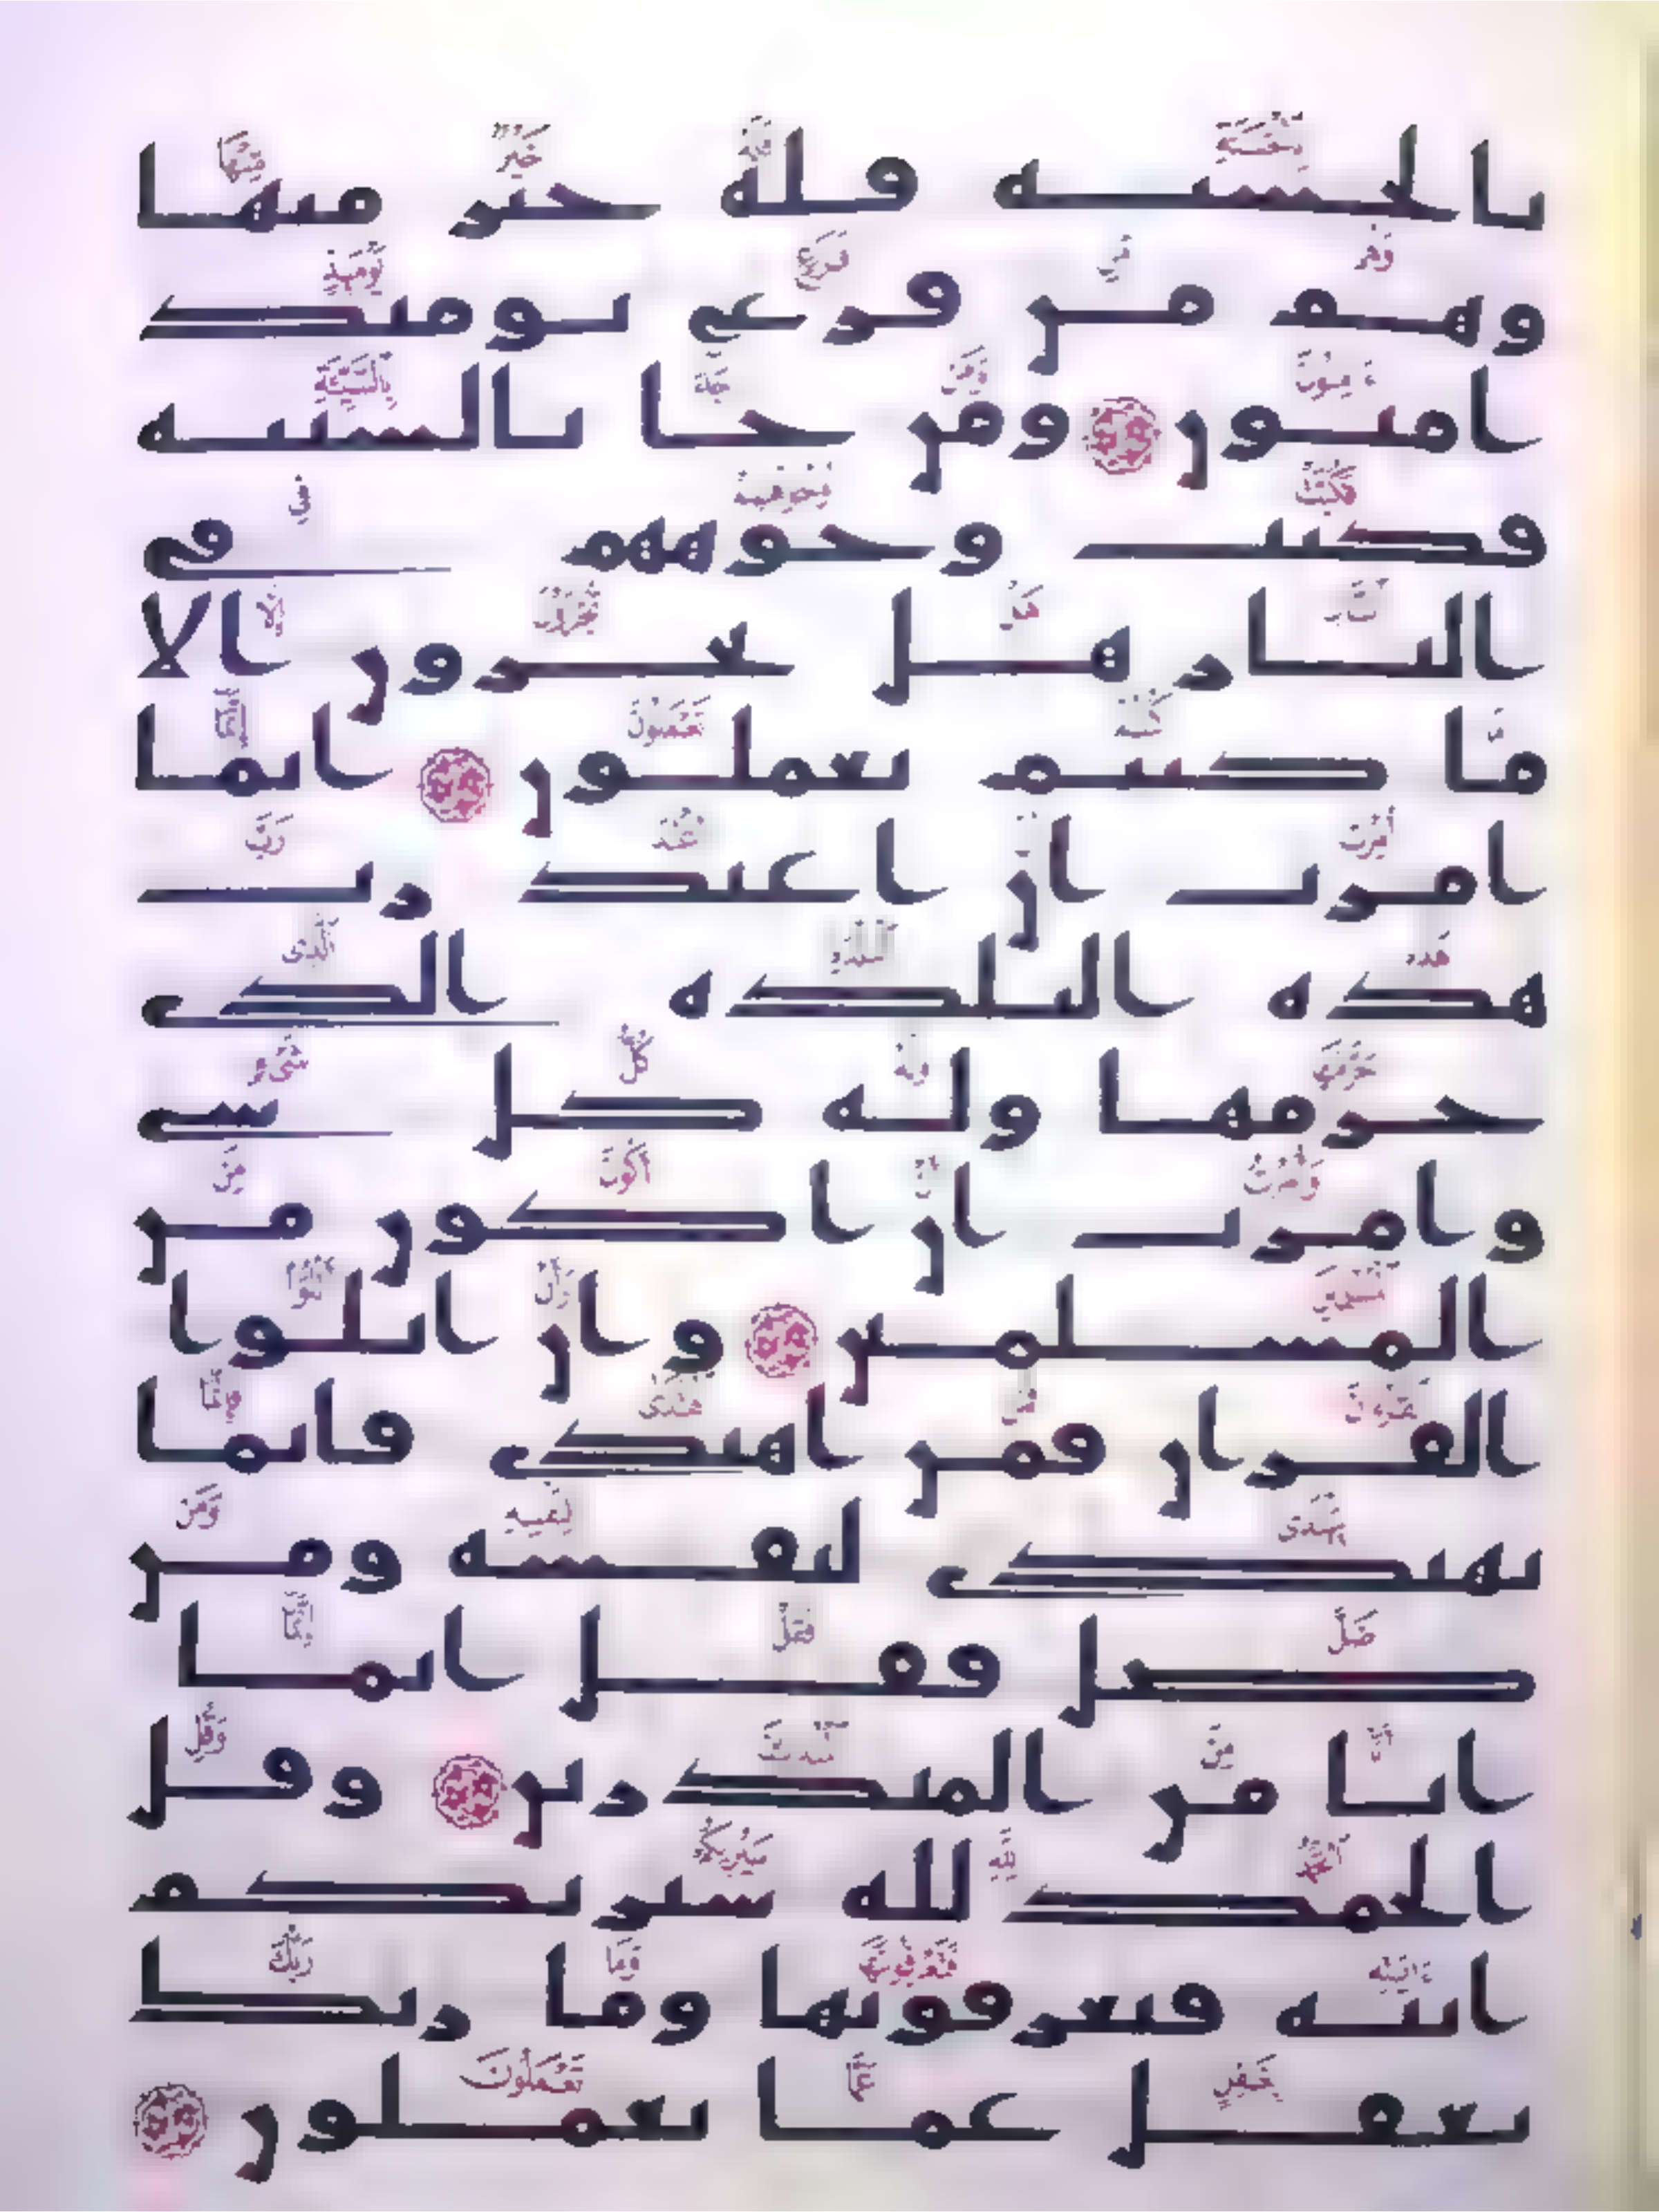 بالحسنه فله خير منها
وهم من فزع يومئذ
امنون ومن جا بالسيئه
فكبت وجوههم في
النار هل تجزون الا
ما كنتم تعملون انما
امرت ان اعبد رب
هذه البلده الذي
حرمها وله كل شي
وامرت ان اكون من
المسلمين وان اتلوا
القران فمن اهتدى فانما
يهتدى لنفسه ومن
ضل فقل انما
انا من المنذرين وقل
الحمد لله سيريكم
ايته فتعرفونها وما ربك
بغفل عما تعملون